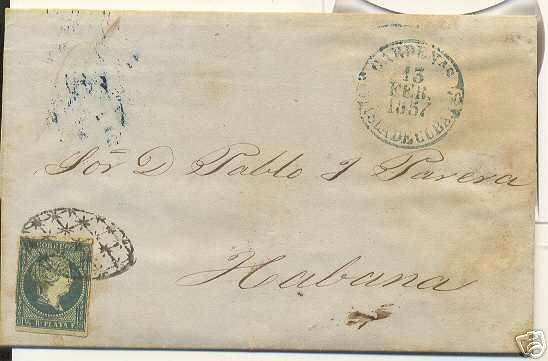 CARDENAS
13
FEB.
1857
ISLA DE CUBA
Sör D. Pablo J Parera
Habana
CORREOS
Rl. PLATA F.